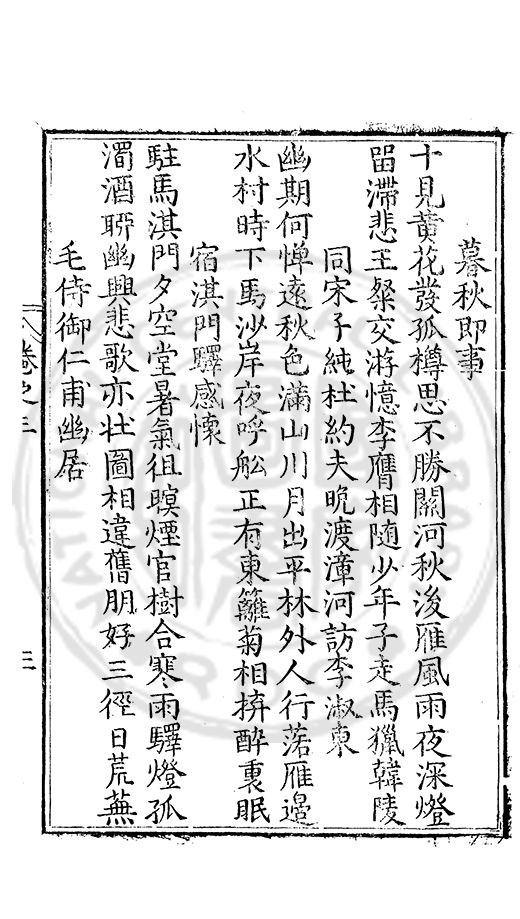 暮秋即事
十見黄花發孤樽思不勝關河秋後雁風雨夜深燈
留滯悲王粲交游憶李膺相随少年子走馬獵韓陵
同宋子純杜約夫晩渡漳河訪李淑東
幽期何惮遠秋色滿山川月出平林外人行落雁邉
水村時下馬沙岸夜呼舩正有東籬菊相拚醉裏眠
宿淇門驛感懐
駐馬淇門夕空堂暑氣徂暝煙官樹合寒雨驛燈孤
濁酒聊幽興悲歌亦壮圖相違舊朋好三徑日荒蕪
毛侍御仁甫幽居
卷之三
三